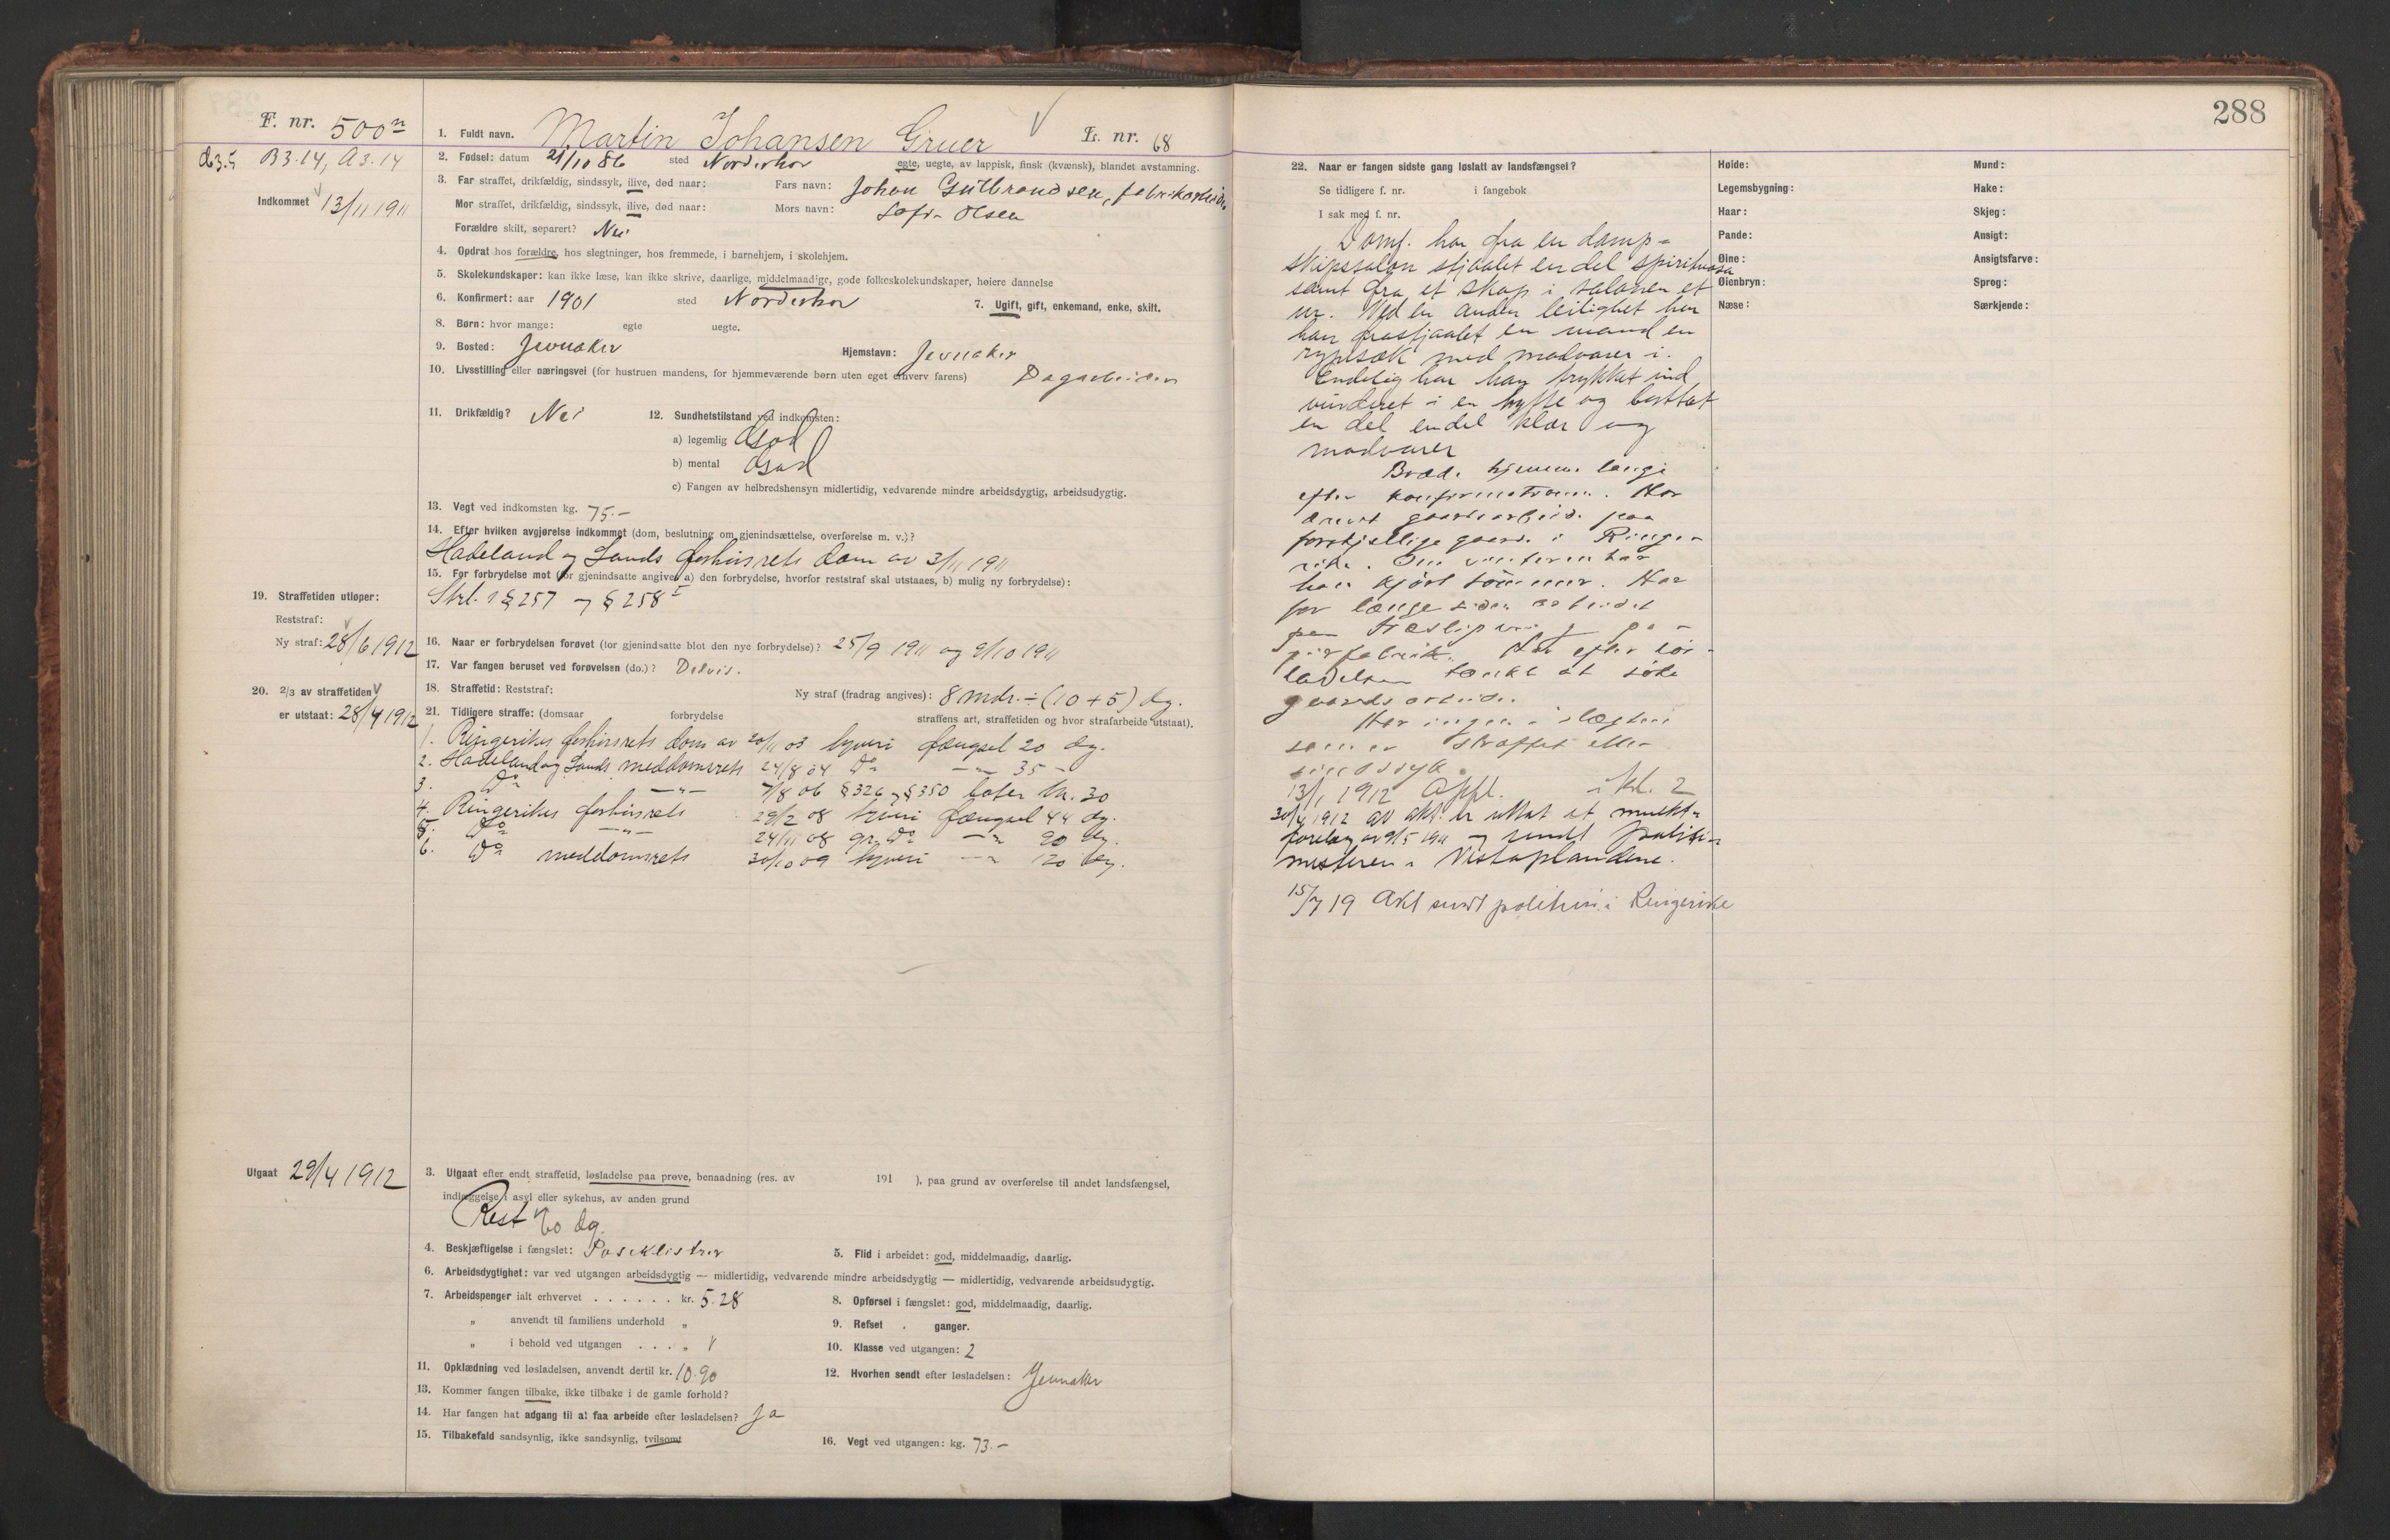 288
F. nr. 500
d3.5 B3.14, A3.14
Indkommet 13/11 1911
1. Fuldt navn. Martin Johansen Gruer L. nr. 68
2. Fødsel: datum 21/10 86 sted Norderhov egte, uegte, av lappisk, finsk (kvænsk), blandet avstamning.
3. Far straffet, drikfældig, sindssyk, ilive, død naar: Fars navn: Johan Gulbrandsen, fabrikarbeider
Mor straffet, drikfældig, sindssyk, ilive, død naar: Mors navn: Sofie Olsen
Forældre skilt, separert? Nei
4. Opdrat hos forældre, hos slegtninger, hos fremmede, i barnehjem, i skolehjem.
5. Skolekundskaper: kan ikke læse, kan ikke skrive, daarlige, middelmaadige, gode folkeskolekundskaper, høiere dannelse
6. Konfirmert: aar 1901 sted Norderhov 7. Ugift, gift, enkemand, enke, skilt.
8. Børn: hvor mange: egte uegte.
9. Bosted: Jevnaker Hjemstavn: Jevnaker
10. Livsstilling eller næringsvei (for hustruen mandens, for hjemmeværende børn uten eget erhverv farens) Dagarbeider
11. Drikfældig? Nei 12. Sundhetstilstand ved indkomsten:
a) legemlig God
b) mental God
c) Fangen av helbredshensyn midlertidig, vedvarende mindre arbeidsdygtig, arbeidsudygtig.
13. Vegt ved indkomsten kg. 75.-
14. Efter hvilken avgjørelse indkommet (dom, beslutning om gjenindsættelse, overførelse m. v.)?
Hadeland og Lands forhørsrets dom av 3/11 1911
15. For forbrydelse mot (for gjenindsatte angives a) den forbrydelse, hvorfor reststraf skal utstaaes, b) mulig ny forbrydelse):
Strl. § 257 og § 258 I
19. Straffetiden utløper:
Reststraf:
Ny straf: 28/6 1912
16. Naar er forbrydelsen forøvet (for gjenindsatte blot den nye forbrydelse)? 25/9 1911 og 9/10 1911
17. Var fangen beruset ved forøvelsen (do.)? Delvis.
20. 2/3 av straffetiden
er utstaat: 28/4 1912
18. Straffetid: Reststraf: Ny straf (fradrag angives): 8 mdr. ÷ (10 + 5) dg.
21. Tidligere straffe: (domsaar forbrydelse straffens art, straffetiden og hvor strafarbeide utstaat).
1. Ringerikes forhørsrets dom av 20/11 03 tyveri fængsel 20 dg.
2. Hadeland og Lands meddomsrets 24/8 04 Do -"- 35 -
3. Do -"- 7/8 06 § 326 og § 350 bøter kr. 30
4. Ringerikes forhørsrets 29/2 08 tyveri fængsel 44 dg.
5. Do -"- 24/11 08 gr. Do -"- 90 dg.
6. Do meddomsrets 30/10 09 tyveri -"- 120 dg.
Utgaat 29/4 1912
3. Utgaat efter endt straffetid, løsladelse paa prøve, benaadning (res. av 191 ), paa grund av overførelse til andet landsfængsel,
indlæggelse i asyl eller sykehus, av anden grund
Rest 60 dg.
4. Beskjæftigelse i fængslet: Poseklistrer 5. Flid i arbeidet: god, middelmaadig, daarlig.
6. Arbeidsdygtighet: var ved utgangen arbeidsdygtig — midlertidig, vedvarende mindre arbeidsdygtig — midlertidig, vedvarende arbeidsudygtig.
7. Arbeidspenger ialt erhvervet . . . . . . kr. 5.28 8. Opførsel i fængslet: god, middelmaadig, daarlig.
„ anvendt til familiens underhold „ 9. Refset . ganger.
„ i behold ved utgangen . . . „ 10. Klasse ved utgangen: 2
11. Opklædning ved løsladelsen, anvendt dertil kr. 10.90 12. Hvorhen sendt efter løsladelsen: Jevnaker
13. Kommer fangen tilbake, ikke tilbake i de gamle forhold?
14. Har fangen hat adgang til at faa arbeide efter løsladelsen? Ja
15. Tilbakefald sandsynlig, ikke sandsynlig, tvilsomt 16. Vegt ved utgangen: kg. 73.-
22. Naar er fangen sidste gang løslatt av landsfængsel?
Se tidligere f. nr. i fangebok
I sak med f. nr.
Domf. har fra en damp=
skipssalon stjaalet en del spirituosa
samt fra et skap i salonen et
ur. Ved en anden leilighet har
han frastjaalet en mand en
rypesæk med madvarer i.
Endelig har han trykket ind
vinduet i en hytte og borttat
en del endel klær og
madvarer
hjemme længe
efter konfirmationen. Har
drevet gaardsarbeide paa
forskjellige gaarde i Ringe-
rike. Om vinteren har
han kjørt tømmer. Har
for længe siden arbeidet
paa træsliperi og pa-
pirfabrik. Har efter løs-
ladelsen tænkt at søke
gaardsarbeide.
Har ingen i slægten
som er straffet eller
sindssyk.
13/1 1912 Oppl. i kl. 2
30/4 1912 av akt. er uttat et mulkt-
forelæg av 9/5 1911 og sendt politi-
mesteren i Vestoplandene.
15/7 19 Akt sendt politim. i Ringerike
Høide: Mund:
Legemsbygning: Hake:
Haar: Skjeg:
Pande: Ansigt:
Øine: Ansigtsfarve:
Øienbryn: Sprog:
Næse: Særkjende: